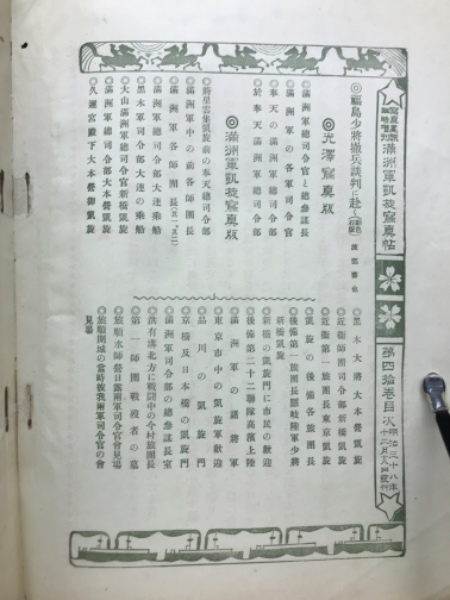 滿洲軍凱旋寫眞帖
第四拾卷目次
明治三十八年
◎福島少將撤兵談判に赴く
◎光澤寫眞版
滿洲軍總司令官と總參謀長
滿洲軍の各軍司令官
奉天の滿洲軍總司令部
於奉天滿洲軍總司令部
◎滿洲軍凱旋寫眞版
◎將星雲集凱旋前の奉天總司令部
◎滿洲軍中の前各師團長
◎滿洲軍各師團長
◎黑木軍司令部大連の乘船
◎滿洲軍總司令部大連の乘船
◎大山滿洲軍總司令官新橋凱旋
◎滿洲軍總司令部大本營凱旋
◎久邇宮殿下大本營御凱旋
◎黑木大將大本營凱旋
◎近衞師團司令部新橋凱旋
◎近衞第一旅團長東京凱旋
◎凱旋の後備各旅團長
◎後備第一旅團長隱岐陸軍少將新橋凱旋
◎新橋の凱旋門に市民の歡迎
◎後備第二十二聯隊高濱上陸
◎滿洲軍の諸將軍
◎東京市中の凱旋軍歡迎
◎品川の凱旋門
◎京橋及日本橋の凱旋門
◎滿洲軍司令部の總參謀長室
◎洪有溝北方に戰鬪中の今村旅團長
◎第一師團戰歿者の墓
◎旅順水師營日露兩軍司令官會見場
◎旅順開城の當時彼我兩軍司令官の會見場